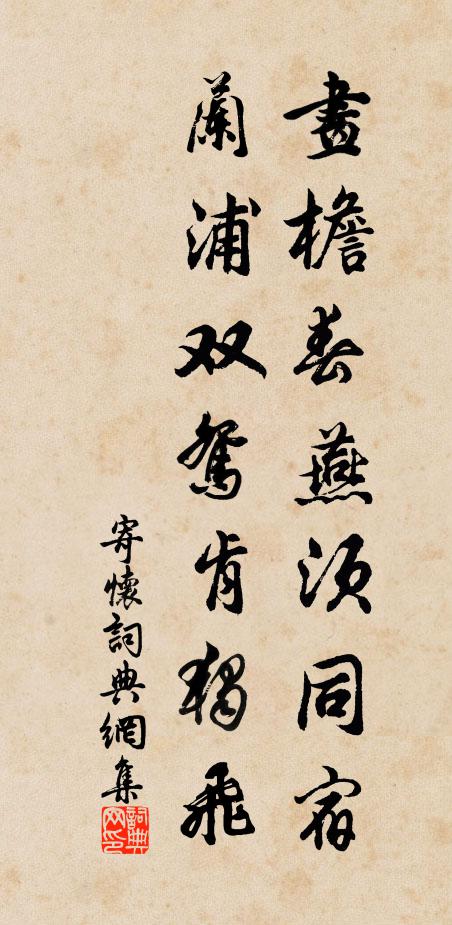 畫檐春燕須同宿
蘭浦双鴛肯獨飛
寄懷詞典網集
詞典网印